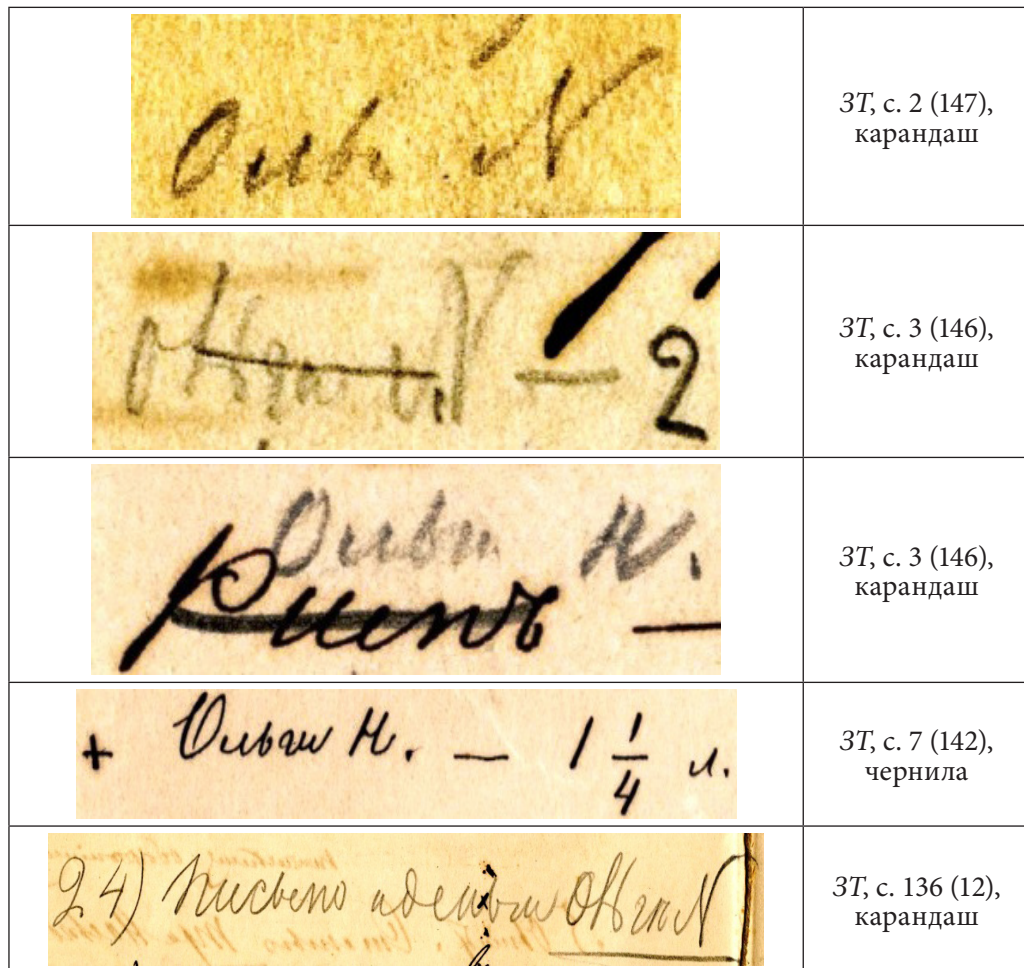 Ольг N
ЗТ, с. 2 (147),
карандаш
N — 2
ЗТ, с. 3 (146),
карандаш
Ольг Н.
ЗТ, с. 3 (146),
карандаш
+ Ольги Н. — 1 1/4 л.
ЗТ, с. 7 (142),
чернила
24) Письмо и деньги N
ЗТ, с. 136 (12),
карандаш